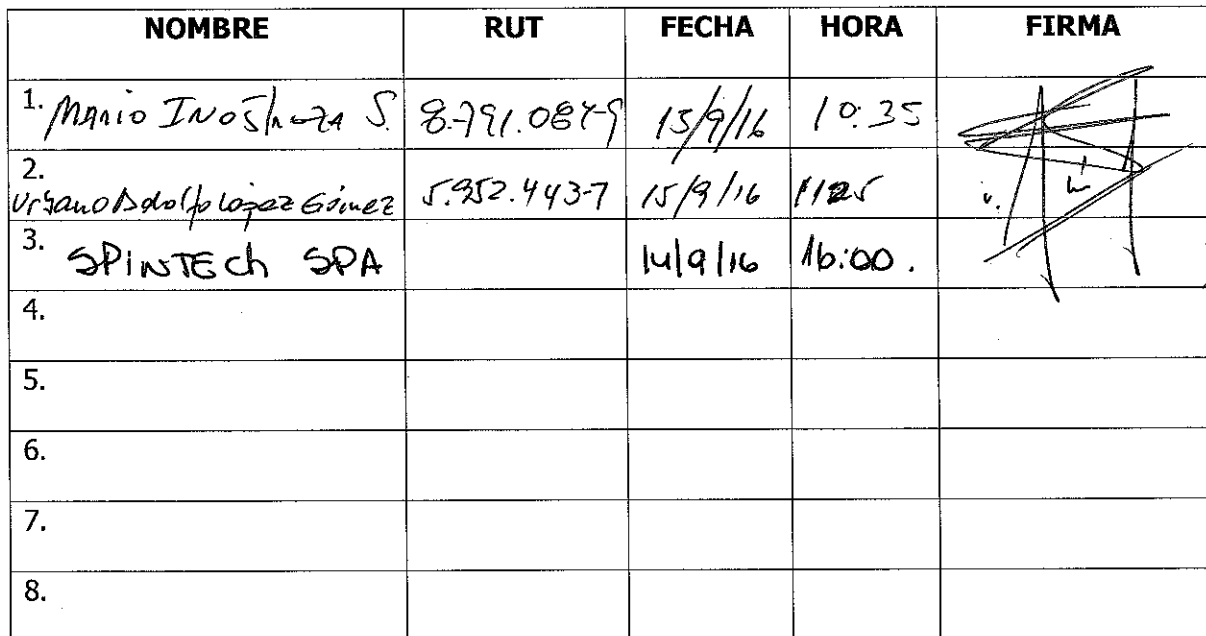 NOMBRE RUT FECHA HORA FIRMA
1. Mario Inostroza S. 8.791.087-9 15/9/16 10:35
2. Urbano Adolfo López Gómez 5.952.443-7 15/9/16 1125
3. SPINTECh SPA 14/9/16 16:00.
4.
5.
6.
7.
8.